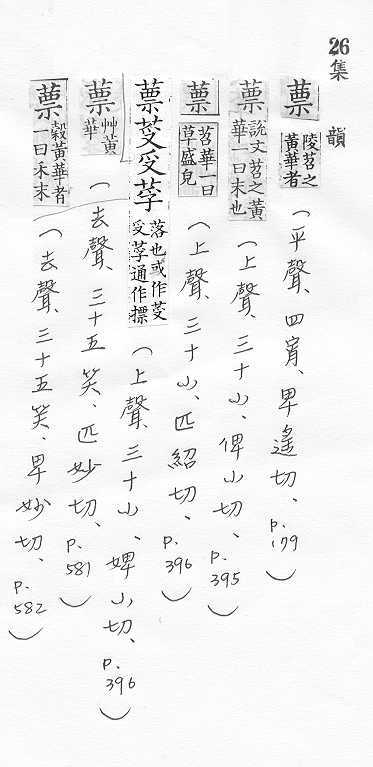 26
集韻
蔈 陵苕之黃華者 (平聲、四宵、卑遙切、p.179)
蔈 說文苕之黃華一曰末也 (上聲、三十小、俾小切、p.395)
蔈 苕華一曰草盛皃 (上聲、三十小、匹紹切、p.396)
蔈芟受莩 落也或作芟受莩通作摽 (上聲、三十小、婢小切、p.396)
蔈 艸黃華 (去聲、三十五笑、匹妙切、p.581)
蔈 穀黃華者一曰禾末 (去聲、三十五笑、卑妙切、p.582)